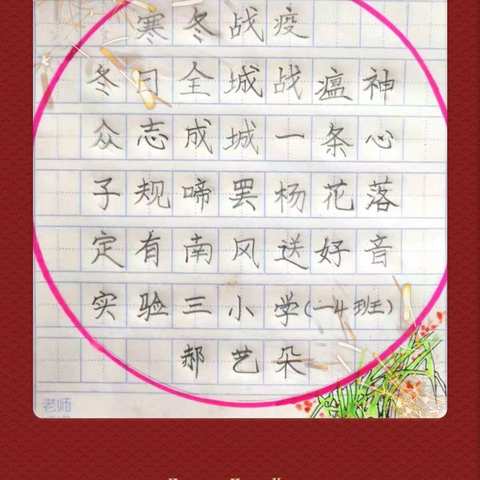 寒冬战疫
冬日全城战瘟神
众志成城一条心
子规啼罢杨花落
定有南风送好音
实验三小学(一4班)
郝艺朵
老师